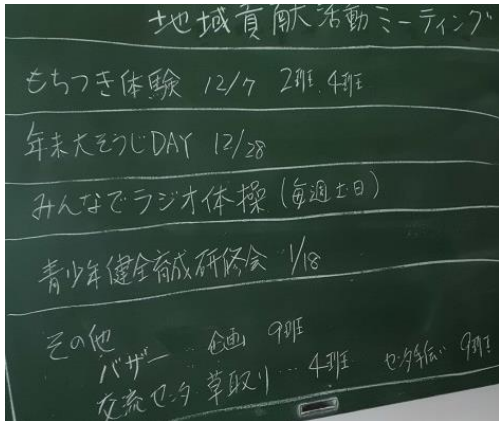 地域貢献活動ミーティング
もちつき体験 12/7 2班、4班
年末大そうじDAY 12/28
みんなでラジオ体操(毎週土日)
青少年健全育成研修会 1/18
その他
バザー… 企画 9班
交流センタ 草取り… 4班 センタ手伝い 9班